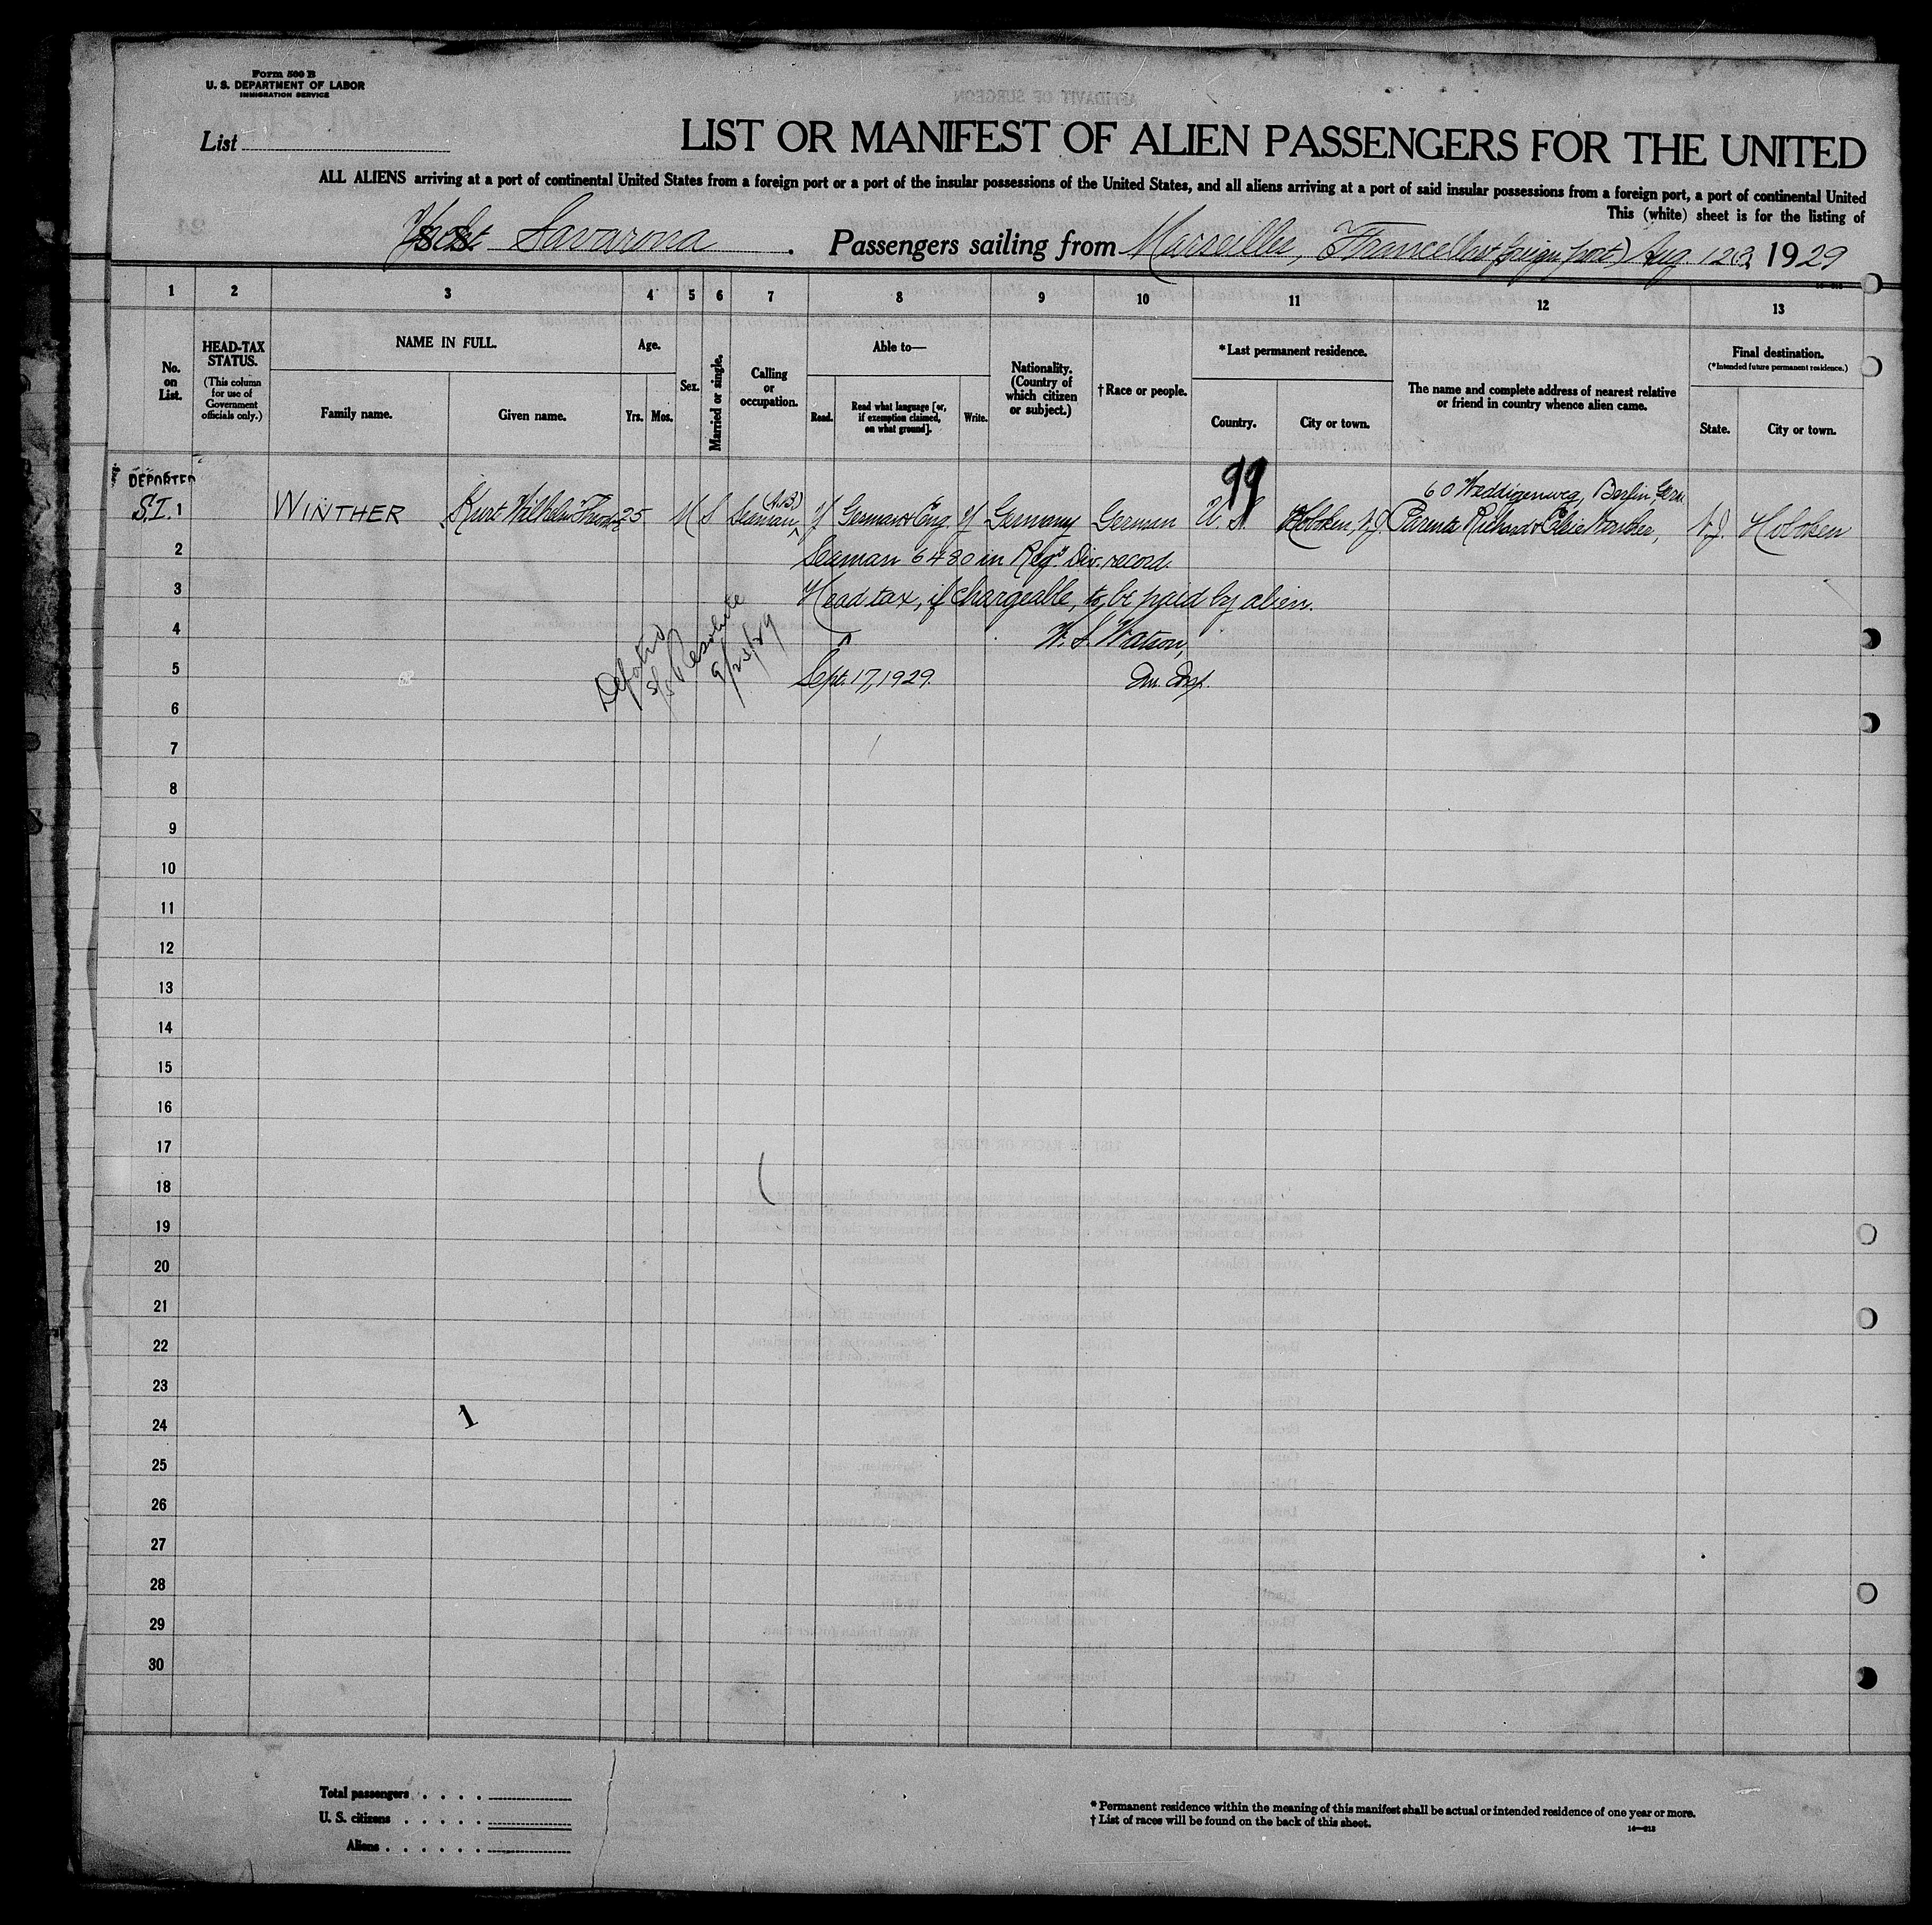 Form 500 B
U. S. DEPARTMENT OF LABOR
IMMIGRATION SERVICE
List
LIST OR MANIFEST OF ALIEN PASSENGERS FOR THE UNITED
ALL ALIENS arriving at a port of continental United States from a foreign port or a port of the insular possessions of the United States, and all aliens arriving at a port of said insular possessions from a foreign port, a port of continental United
This (white) sheet is for the listing of
Yacht Savarona. Passengers sailing from Marseilles, France (last foreign port) Aug. 1929
1 2 3 4 5 6 7 8 9 10 11 12 13
No. on List.
HEAD-TAX STATUS.
(This column for use of Government officials only.)
NAME IN FULL.
Family name.
Given name.
Age.
Yrs. Mos.
Sex.
Married or single.
Calling or occupation.
Able to—
Read.
Read what language [or, if exemption claimed, on what ground].
Write.
Nationality. (Country of which citizen or subject.)
† Race or people.
*Last permanent residence.
Country.
City or town.
The name and complete address of nearest relative or friend in country whence alien came.
Final destination.
(*Intended future permanent residence.)
State.
City or town.
DEPORTED
99
60 Weddigenweg, Berlin, Germ.
S.I. 1 WINTHER Kurt Wilhelm 25 M S Seaman (A.B.) Y German & Eng. Y Germany German U.S. Hoboken, N.J. Parents Richard & Winther, N.J. Hoboken
2 Seaman 6480 in Reg. Div. record.
3 Head tax, if chargeable, to be paid by alien.
4 W. S. Watson,
5 Sept. 17, 1929. Im. Insp.
Deported
S/S Resolute
9/23/29
6
7
8
9
10
11
12
13
14
15
16
17
18
19
20
21
22
23
24
1
25
26
27
28
29
30
Total passengers
U. S. citizens
Aliens
* Permanent residence within the meaning of this manifest shall be actual or intended residence of one year or more.
† List of races will be found on the back of this sheet.